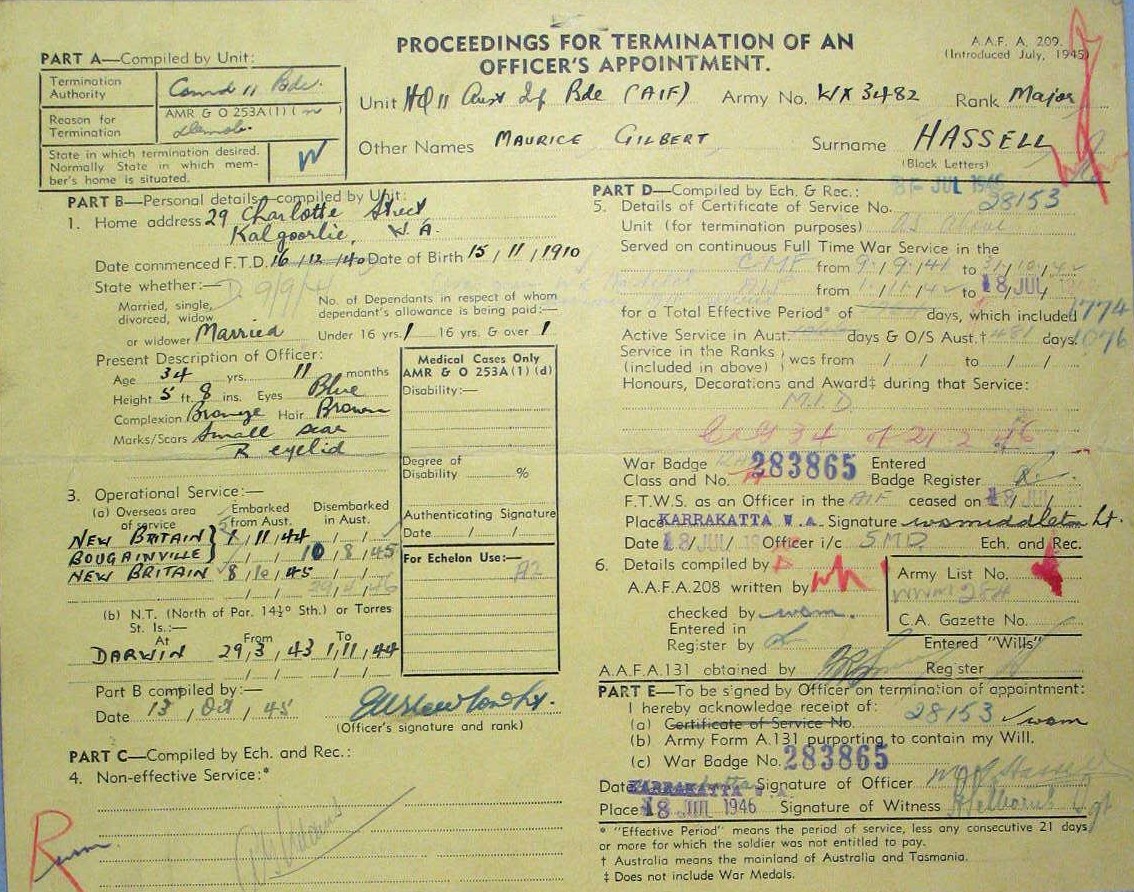 PROCEEDINGS FOR TERMINATION OF AN
OFFICER'S APPOINTMENT.
A.A.F. A. 209.
(Introduced July, 1945)
PART A—Compiled by Unit:
Termination Authority Comd 11 Bde.
Reason for Termination AMR & O 253A(1) ( ) demob.
State in which termination desired.
Normally State in which mem-
ber's home is situated. W
Unit HQ 11 Aust Inf Bde (AIF) Army No. WX 3482 Rank Major
Other Names MAURICE GILBERT Surname HASSELL
(Block Letters)
PART B—Personal details—compiled by Unit:
1. Home address 29 Charlotte Street
Kalgoorlie, W.A.
Date commenced F.T.D. 16/12/40 Date of Birth 15/11/1910
State whether:— D. 9/9/4
Married, single,
divorced, widow
or widower Married
No. of Dependants in respect of whom
dependant's allowance is being paid:—
Under 16 yrs. 1 16 yrs. & over 1
Present Description of Officer:
Age 34 yrs. 11 months
Height 5 ft. 8 ins. Eyes Blue
Complexion Bronze Hair Brown
Marks/Scars Small scar
R eyelid
Medical Cases Only
AMR & O 253A(1) (d)
Disability:—
Degree of
Disability %
Authenticating Signature
Date / /
For Echelon Use:—
A2
3. Operational Service:—
(a) Overseas area of service Embarked from Aust. Disembarked in Aust.
NEW BRITAIN 1/11/44 / /
BOUGAINVILLE / / 10/8/45
NEW BRITAIN 8/10/45 / /
(b) N.T. (North of Par. 14½° Sth.) or Torres
St. Is.:—
At From To
DARWIN 29/3/43 1/11/44
/ / / /
Part B compiled by:—
Date 13/Oct/45
(Officer's signature and rank)
PART C—Compiled by Ech. and Rec.:
4. Non-effective Service:*
R
PART D—Compiled by Ech. & Rec.: JUL 1946
5. Details of Certificate of Service No. 28153
Unit (for termination purposes) as above
Served on continuous Full Time War Service in the
CMF from 9/9/41 to 31/10/42
AIF from 1/11/42 to 18 JUL
for a Total Effective Period* of days, which included 1774
Active Service in Aust. days & O/S Aust.† 481 days. 1076
Service in the Ranks
(included in above) was from / / to / /
Honours, Decorations and Award‡ during that Service:
M.I.D.
34 of 21 2 46
War Badge
Class and No. 283865 Entered
Badge Register
F.T.W.S. as an Officer in the AIF ceased on 18 JUL
Place KARRAKATTA W.A. Signature wamiddleton Lt.
Date 18 JUL 19 Officer i/c S.M.D. Ech. and Rec.
6. Details compiled by
A.A.F.A.208 written by
checked by wam.
Entered in
Register by
Army List No.
C.A. Gazette No.
Entered "Wills"
A.A.F.A.131 obtained by Register
PART E—To be signed by Officer on termination of appointment:
I hereby acknowledge receipt of:
(a) Certificate of Service No. 28153 wam
(b) Army Form A.131 purporting to contain my Will.
(c) War Badge No. 283865
Date KARRAKATTA W.A. Signature of Officer M G Hassell
Place 18 JUL 1946 Signature of Witness Sgt
* "Effective Period" means the period of service, less any consecutive 21 days
or more for which the soldier was not entitled to pay.
† Australia means the mainland of Australia and Tasmania.
‡ Does not include War Medals.